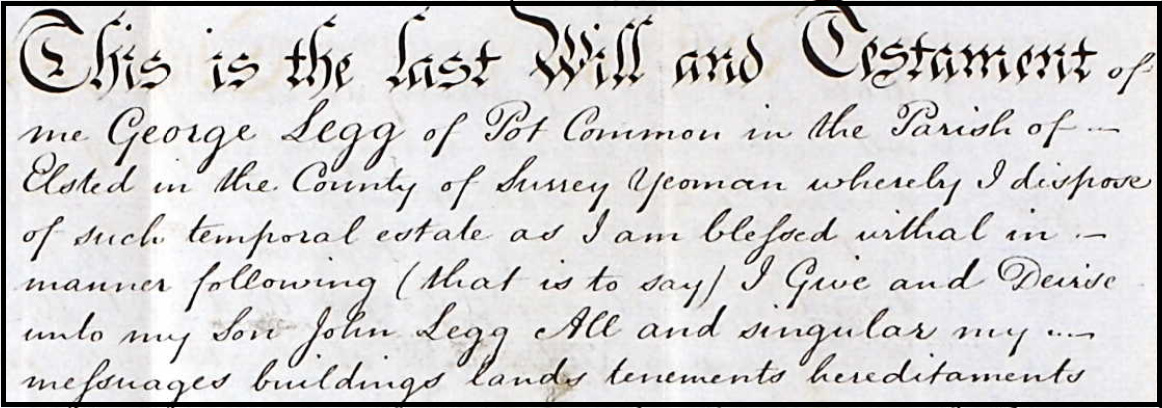 This is the last Will and Testament of
me George Legg of Pot Common in the Parish of —
Elsted in the County of Surrey Yeoman whereby I dispose
of such temporal estate as I am blefsed withal in —
manner following (that is to say) I Give and Devise
unto my Son John Legg All and singular my —
mefsuages buildings lands tenements hereditaments